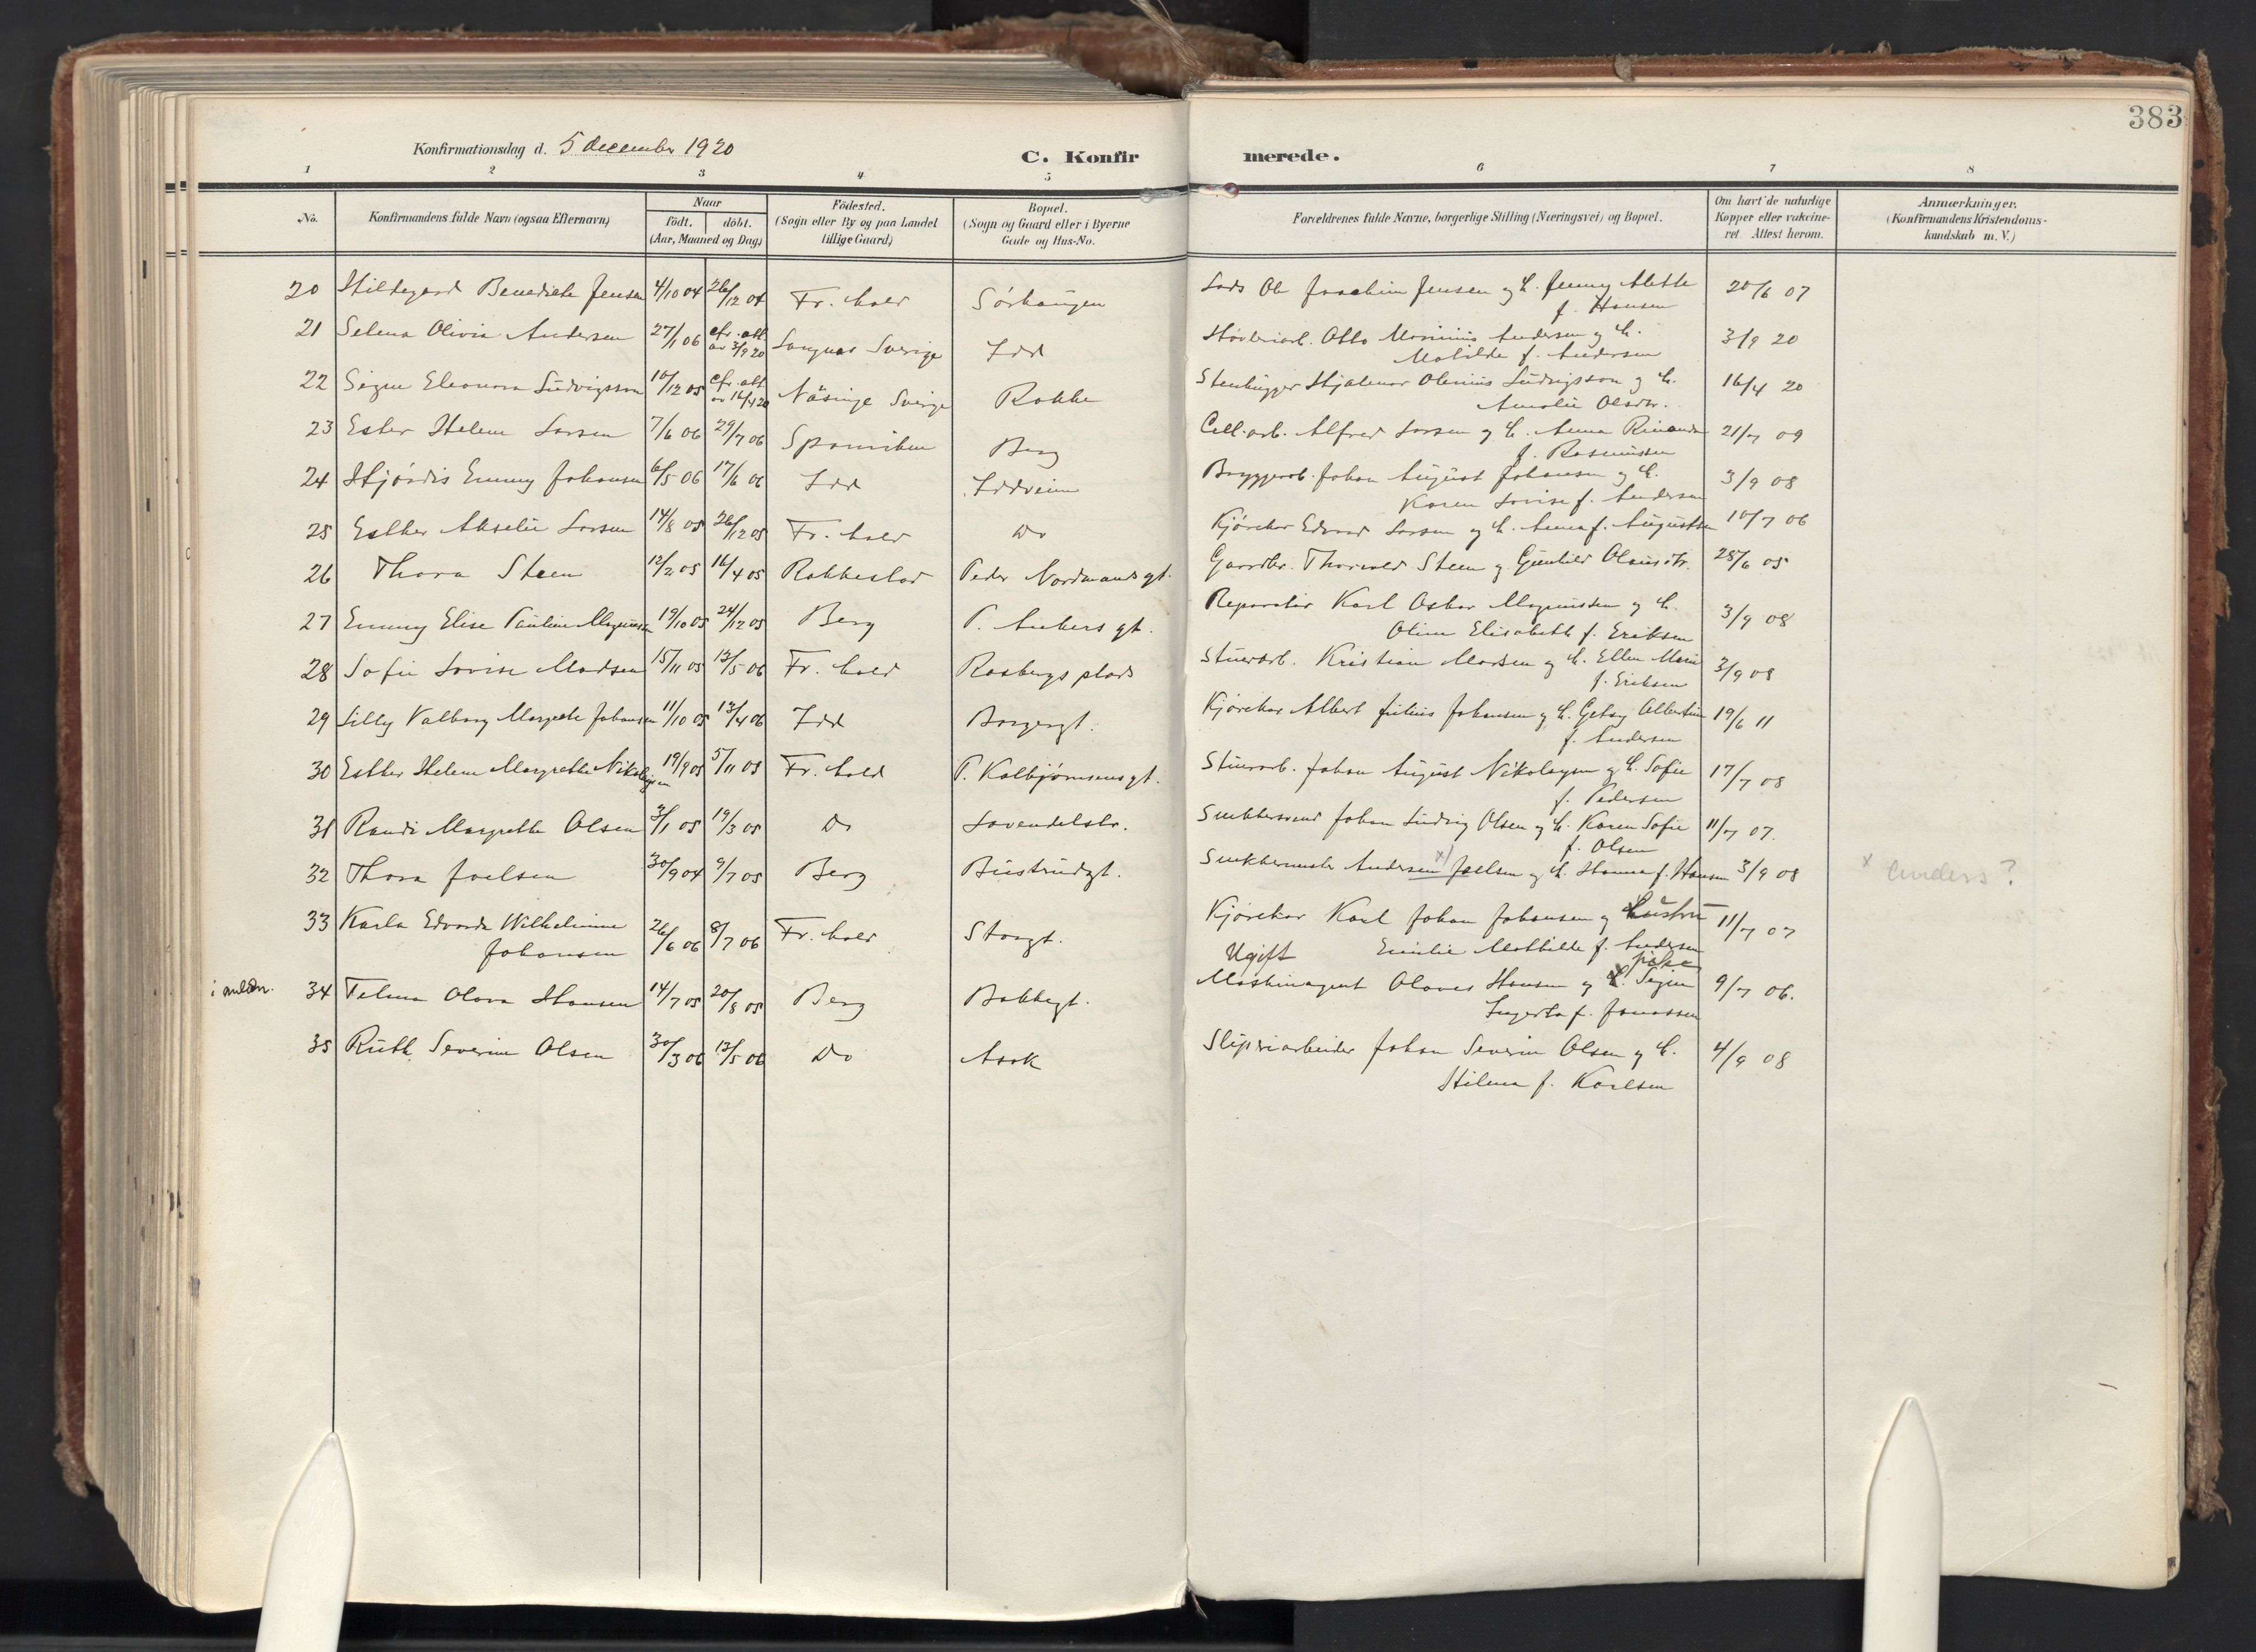 383
Konfirmationsdag d. 5 december 1920
C. Konfirmerede.
1 2 3 4 5 6 7 8
No. Konfirmandens fulde Navn (ogsaa Efternavn) Naar födt. döbt. (Aar, Maaned og Dag) Födested. (Sogn eller By og paa Landet tillige Gaard) Bopæl. (Sogn og Gaard eller i Byerne Gade og Hus-No. Forældrenes fulde Navne, borgerlige Stilling (Næringsvei) og Bopæl. Om havt de naturlige Kopper eller vakcineret Attest herom. Anmærkninger. (Konfirmandens Kristendomskundskab m. V.)
20 Hildegard Benedicte Jensen 4/10 04 26/12 04 Fr. hald Sørhaugen Joachim Jensen og h. Jenny Alette 20/6 07
f. Hansen
21 Selma Olivia Andersen 27/1 06 cfr. att. av 3/9 20 Sverige Idd Høvleriarb. Otto Marinius Andersen og h. 3/9 20
Matilde f. Andersen
22 Signe Eleonora Ludvigsson 10/12 05 cfr. att. av 16/4 20 Näsinge Sverige Rokke Stenhugger Hjalmar Olenius Ludvigsson og h. 16/4 20
Amalie Olsdtr.
23 Ester Helene Larsen 7/6 06 29/7 06 Sponviken Berg Cell.arb. Alfred Larsen og h. Anna 21/7 09
f. Rasmussen
24 Hjørdis Emmy Johansen 6/5 06 17/6 06 Idd Iddveien Bryggerarb. Johan August Johansen og h. 3/9 08
Karen Lovise f. Andersen
25 Esther Akselie Larsen 14/8 05 26/12 05 Fr. hald Do Kjørekar Edvard Larsen og h. Anna f. Augustsen 10/7 06
26 Thora Steen 12/2 05 16/4 05 Rakkestad Peder Nordmands gt. Gaardbr. Thorvald Steen og Gunhild Olausdtr. 28/6 05
27 Emmy Elise Pauline Magnussen 19/10 05 24/12 05 Berg P. Ankers gt. Reparatør Karl Oskar Magnussen og h. 3/9 08
Oline Elisabeth f. Eriksen
28 Sofie Lovise Madsen 15/11 05 13/5 06 Fr. hald Rosbergs plads Stuerarb. Kristian Madsen og h. Ellen Marie 3/9 08
f. Eriksen
29 Lilly Valborg Margrete Johansen 11/10 05 13/4 06 Idd Borgergt. Kjørekar Albert Julius Johansen og h. Albertine 19/6 11
f. Andersen
30 Esther Helene Margrethe Nikolaysen 19/9 05 5/11 05 Fr. hald P. Kolbjørnsens gt. Stuerarb. Johan August Nikolaysen og h. Sofie 17/7 08
f. Pedersen
31 Randi Margrethe Olsen 3/1 05 19/3 05 Do Lavendelstr. Snekkersvend Johan Ludvig Olsen og h. Karen Sofie 11/7 07.
f. Olsen
32 Thora Joelsen 30/9 04 9/7 05 Berg Busterudgt. Snekkermester Andersen x) Joelsen og h. Hanna f. Hansen 3/9 08 x Anders?
33 Karla Edvarda Wilhelmine 26/6 06 8/7 06 Fr. hald Storgt. Kjørekar Karl Johan Johansen og hustru 11/7 07
Johansen Emilie Mathilde f. Andersen
Ugift pike
34 Telma Olava Hansen 14/7 05 20/8 05 Berg Bakkegt. Maskinagent Olaves Hansen og Signe 9/7 06.
f. Jonassen
35 Ruth Severine Olsen 30/3 06 13/5 06 Do Asak Sliperiarbeider Johan Severin Olsen og h. 4/9 08
Hilma f. Karlsen